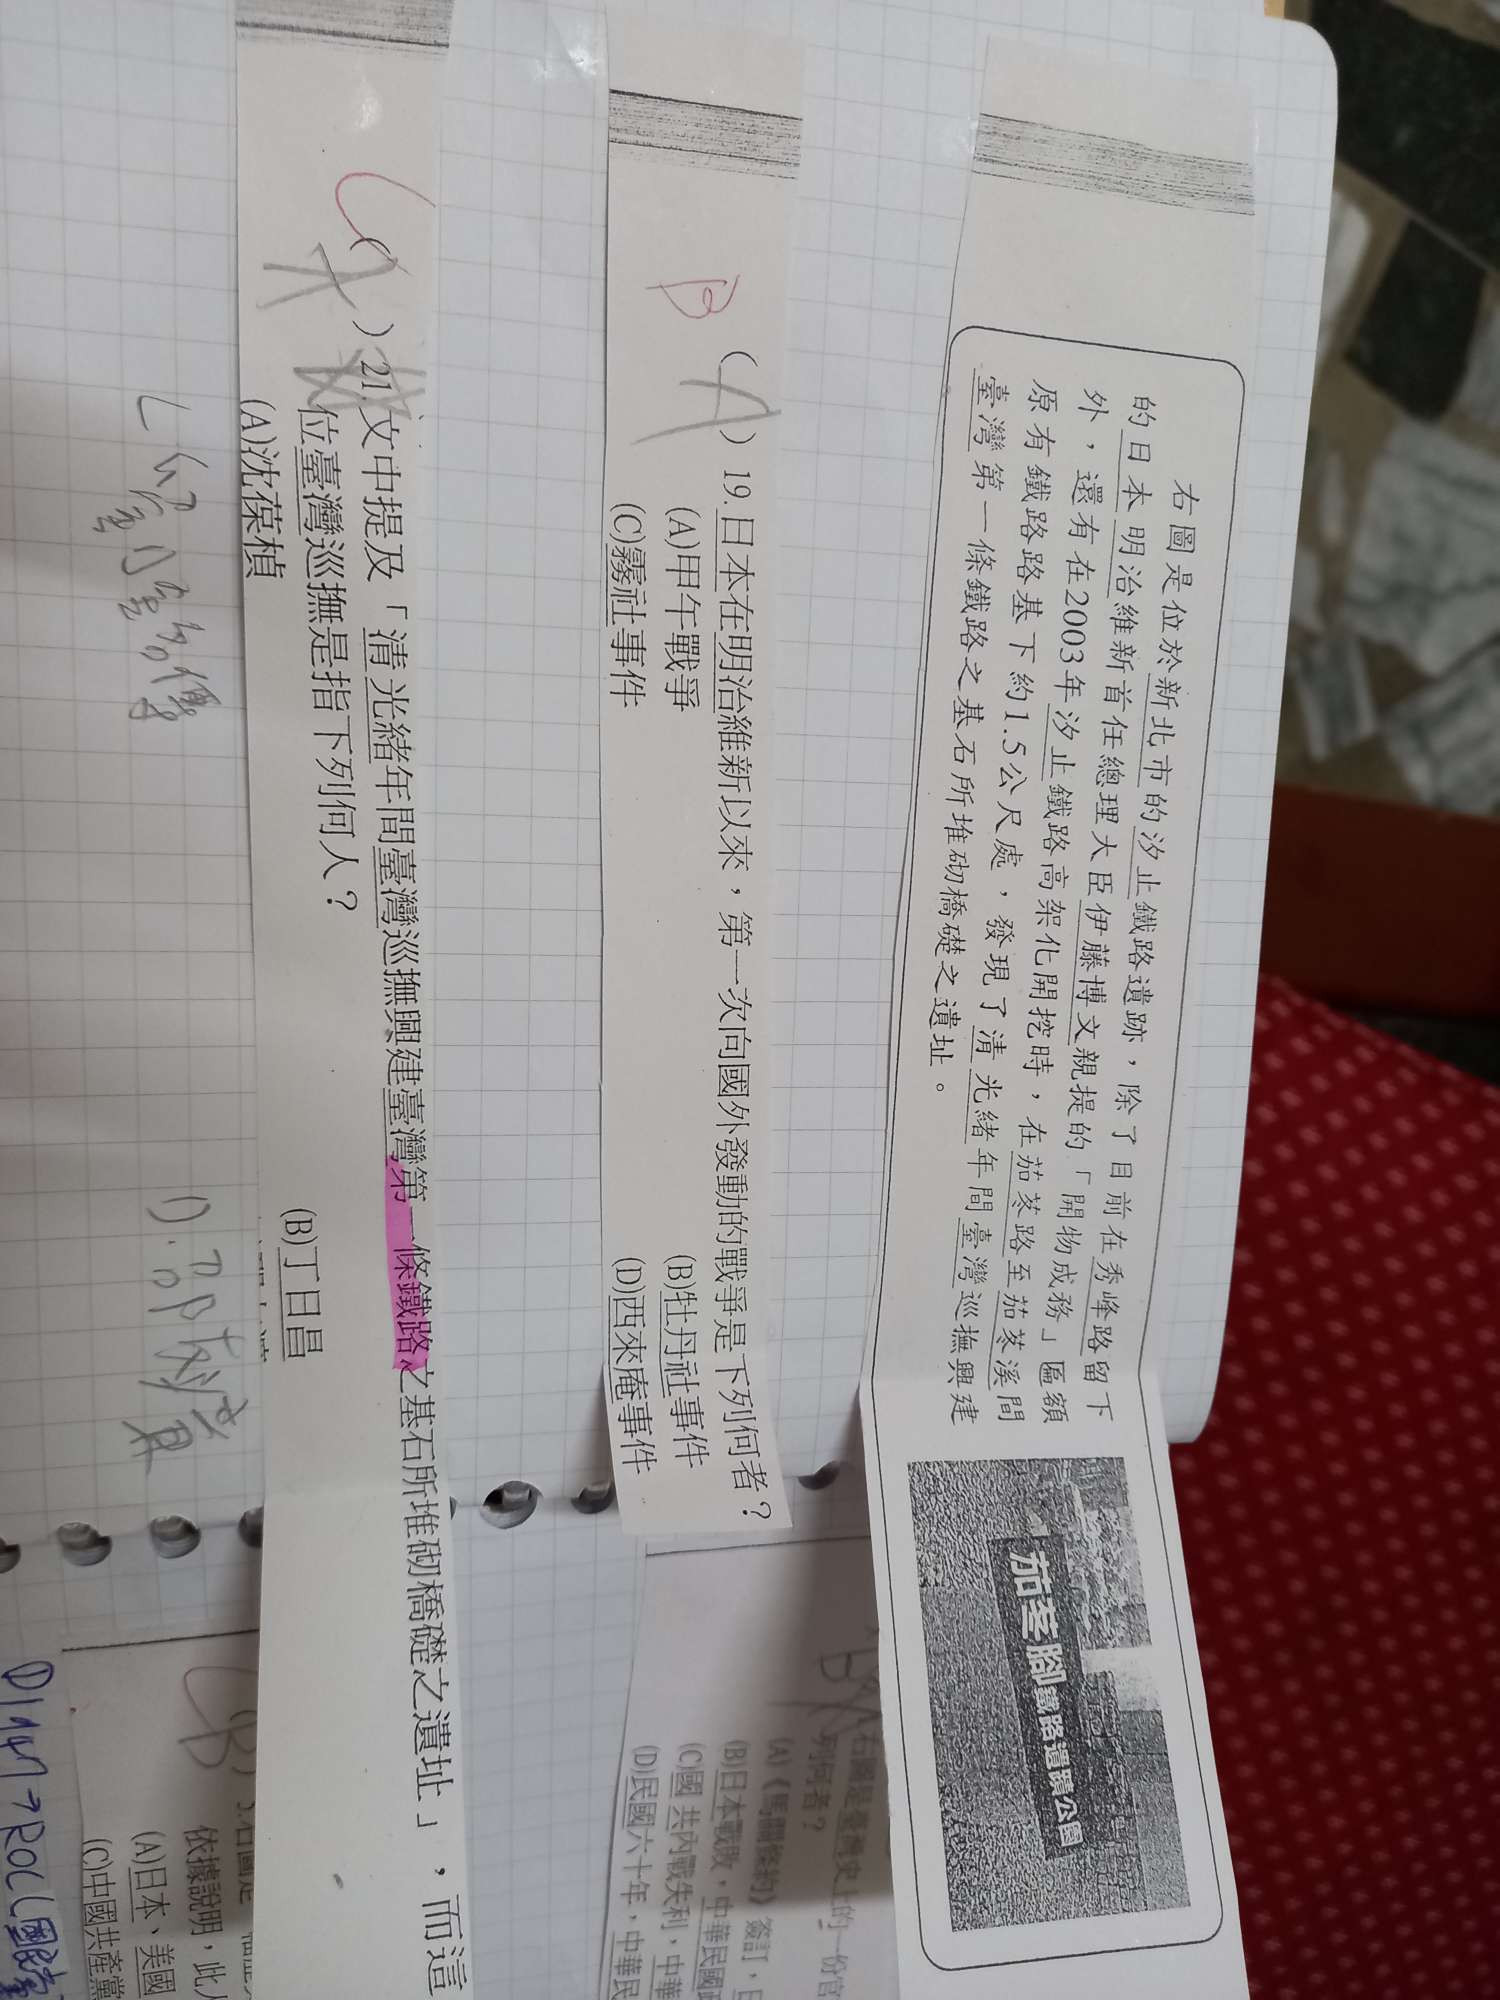 右圖是位於新北市的汐止鐵路遺跡，除了目前在秀峰路留下
的日本明治維新首任總理大臣伊藤博文親提的「開物成務」匾額
外，還有在2003年汐止鐵路高架化開挖時，在茄苳路至茄苳溪間
原有鐵路路基下約1.5公尺處，發現了清光緒年間臺灣巡撫興建
臺灣第一條鐵路之基石所堆砌橋礎之遺址。
茄苳腳鐵路遺蹟公園
B
(A) 19.日本在明治維新以來，第一次向國外發動的戰爭是下列何者？
(A)甲午戰爭 (B)牡丹社事件
(C)霧社事件 (D)西來庵事件
C
(A) 21.文中提及「清光緒年間臺灣巡撫興建臺灣第一條鐵路之基石所堆砌橋礎之遺址」，而這
位臺灣巡撫是指下列何人？
(A)沈葆楨 (B)丁日昌
劉銘傳 D.邵友濂
右圖是臺灣史上的一份官
列何者？
(A)《馬關條約》簽訂，日
(B)日本戰敗，中華民國政
(C)國共內戰失利，中華
(D)民國六十年，中華民
依據說明，此人
(A)日本、美國
(C)中國共產黨